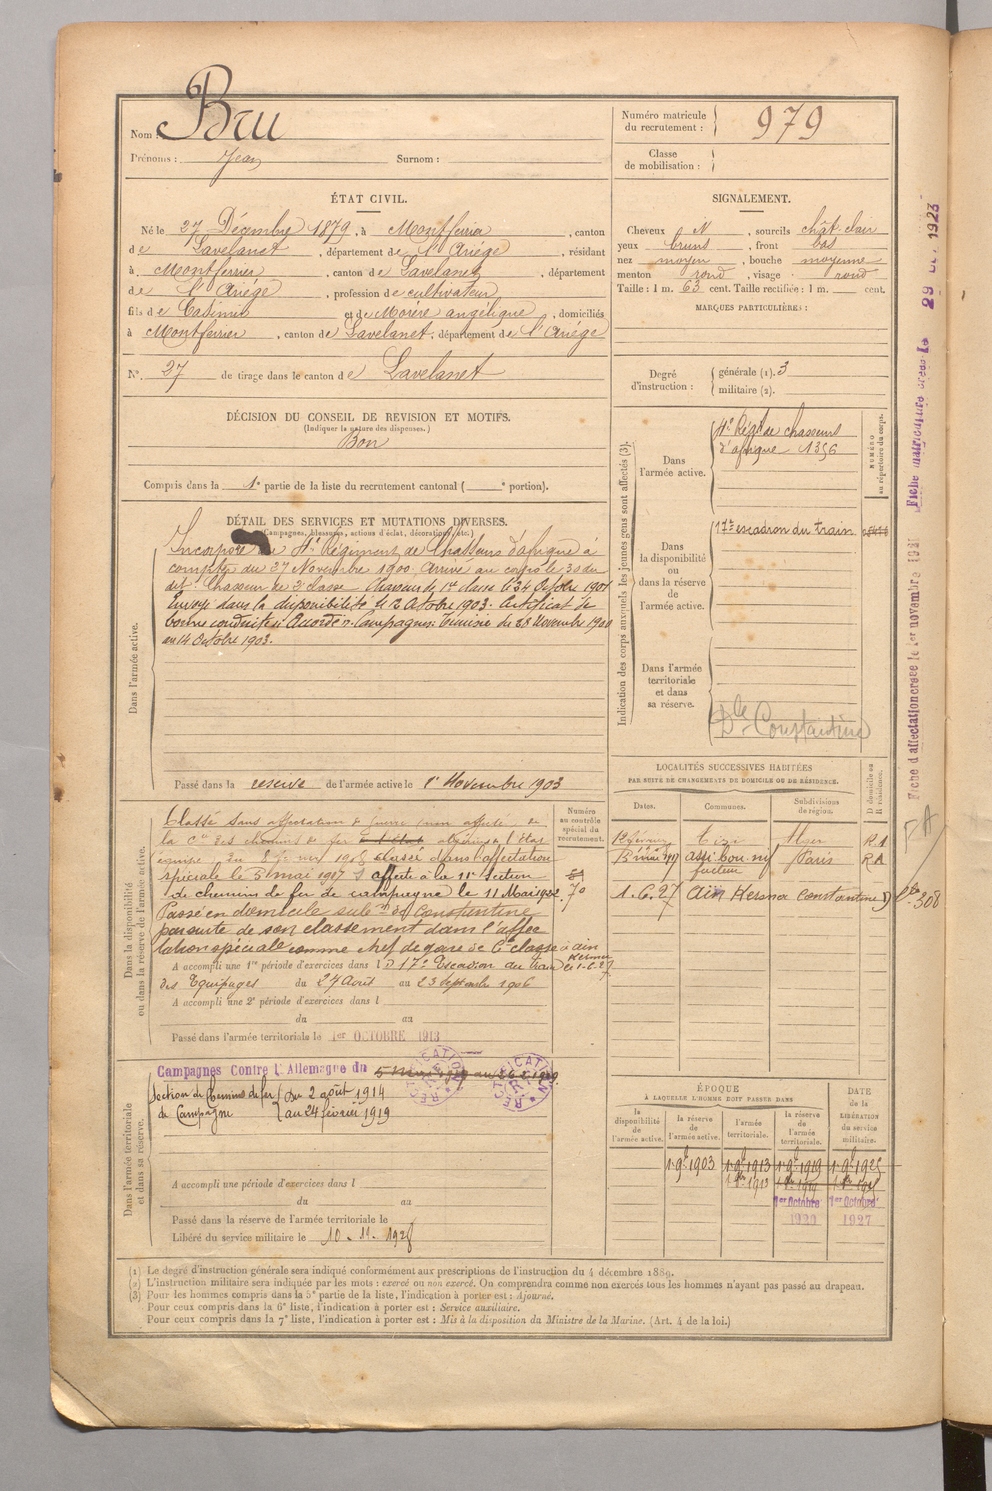 Nom : Bru
Prénoms : Jean Surnom :
Numéro matricule du recrutement : 979
Classe de mobilisation :
ÉTAT CIVIL.
Né le 27 Décembre 1879, à Montferrier, canton
de Lavelanet, département de l'Ariége, résidant
à Montferrier, canton de Lavelanet, département
de l'Ariége, profession de cultivateur
fils de Casimir et de Morère angélique, domiciliés
à Montferrier, canton de Lavelanet, département de l'Ariége
N°. 27 de tirage dans le canton de Lavelanet
SIGNALEMENT.
Cheveux N, sourcils chât clair
yeux bruns, front bas
nez moyen, bouche moyenne
menton rond, visage rond
Taille : 1 m. 63 cent. Taille rectifiée : 1 m. cent.
MARQUES PARTICULIÈRES :
Degré d'instruction : générale (1). 3
militaire (2).
DÉCISION DU CONSEIL DE REVISION ET MOTIFS.
(Indiquer la nature des dispenses.)
Bon
Compris dans la 1e partie de la liste du recrutement cantonal ( e portion).
DÉTAIL DES SERVICES ET MUTATIONS DIVERSES.
(Campagnes, blessures, actions d'éclat, décorations, etc.)
Dans l'armée active.
Incorporé au 4e Régiment de Chasseurs d'afrique à
compter du 27 Novembre 1900. Arrivé au corps le 30 du
dit. Chasseur de 2e classe. Chasseur de 1re classe le 24 Octobre 1901
Envoyé dans la disponibilité le 2 Octobre 1903. Certificat de
bonne conduite "Accordé". Campagnes: Tunisie du 28 Novembre 1900
au 14 Octobre 1903.
Passé dans la reserve de l'armée active le 1er Novembre 1903
Indication des corps auxquels les jeunes gens sont affectés (3).
NUMÉRO au répertoire du corps.
Dans l'armée active.
4e Régt de chasseurs
d'afrique 1356
Dans la disponibilité ou dans la réserve de l'armée active.
17e escadron du train
Dans l'armée territoriale et dans sa réserve.
Dle Constantine
Dans la disponibilité ou dans la réserve de l'armée active.
Numéro au contrôle spécial du recrutement.
Classé sans affectation
la Cie des chemins de fer algériens l'état
classé dans l'affectation
spéciale le 3 mai 1917 affecté à la 11e section
de chemins de fer de campagne le 11 Mai 1922. 70
Passé en domicile subon de Constantine
par suite de son classement dans l'affec
tation spéciale comme chef de gare de 6e classe à ain
Kerma le 1-6-27
A accompli une 1re période d'exercices dans le 17e Escadron du train
des Equipages du 27 Août au 23 Septembre 1906
A accompli une 2e période d'exercices dans l
du au
Passé dans l'armée territoriale le 1er OCTOBRE 1913
LOCALITÉS SUCCESSIVES HABITÉES
PAR SUITE DE CHANGEMENTS DE DOMICILE OU DE RÉSIDENCE.
Dates. Communes. Subdivisions de région. D domicile ou R résidence.
Alger R
mai 1917 assi bou nif Paris R
1.6.27 Ain Kerma Constantine D
308
Dans l'armée territoriale et dans sa réserve.
Campagnes Contre L'Allemagne du
RECTIFICATION
RECTIFICATION
Section de Chemins de fer du 2 août 1914
de Campagne au 24 février 1919
A accompli une période d'exercices dans l
du au
Passé dans la réserve de l'armée territoriale le
Libéré du service militaire le 10-11-1928
ÉPOQUE
À LAQUELLE L'HOMME DOIT PASSER DANS
la disponibilité de l'armée active. la réserve de l'armée active. l'armée territoriale. la réserve de l'armée territoriale. DATE de la LIBÉRATION du service militaire.
1er 9bre 1903 1er 9bre 1913 1er 9bre 1919 1er 9bre 1925
1er Octobre 1er Octobre
1920 1927
(1) Le degré d'instruction générale sera indiqué conformément aux prescriptions de l'instruction du 4 décembre 1889.
(2) L'instruction militaire sera indiquée par les mots : exercé ou non exercé. On comprendra comme non exercés tous les hommes n'ayant pas passé au drapeau.
(3) Pour les hommes compris dans la 5e partie de la liste, l'indication à porter est : Ajourné.
Pour ceux compris dans la 6e liste, l'indication à porter est : Service auxiliaire.
Pour ceux compris dans la 7e liste, l'indication à porter est : Mis à la disposition du Ministre de la Marine. (Art. 4 de la loi.)
Fiche d'affectation créée le 1er novembre 1921
Fiche matriculaire créée le 29 1923